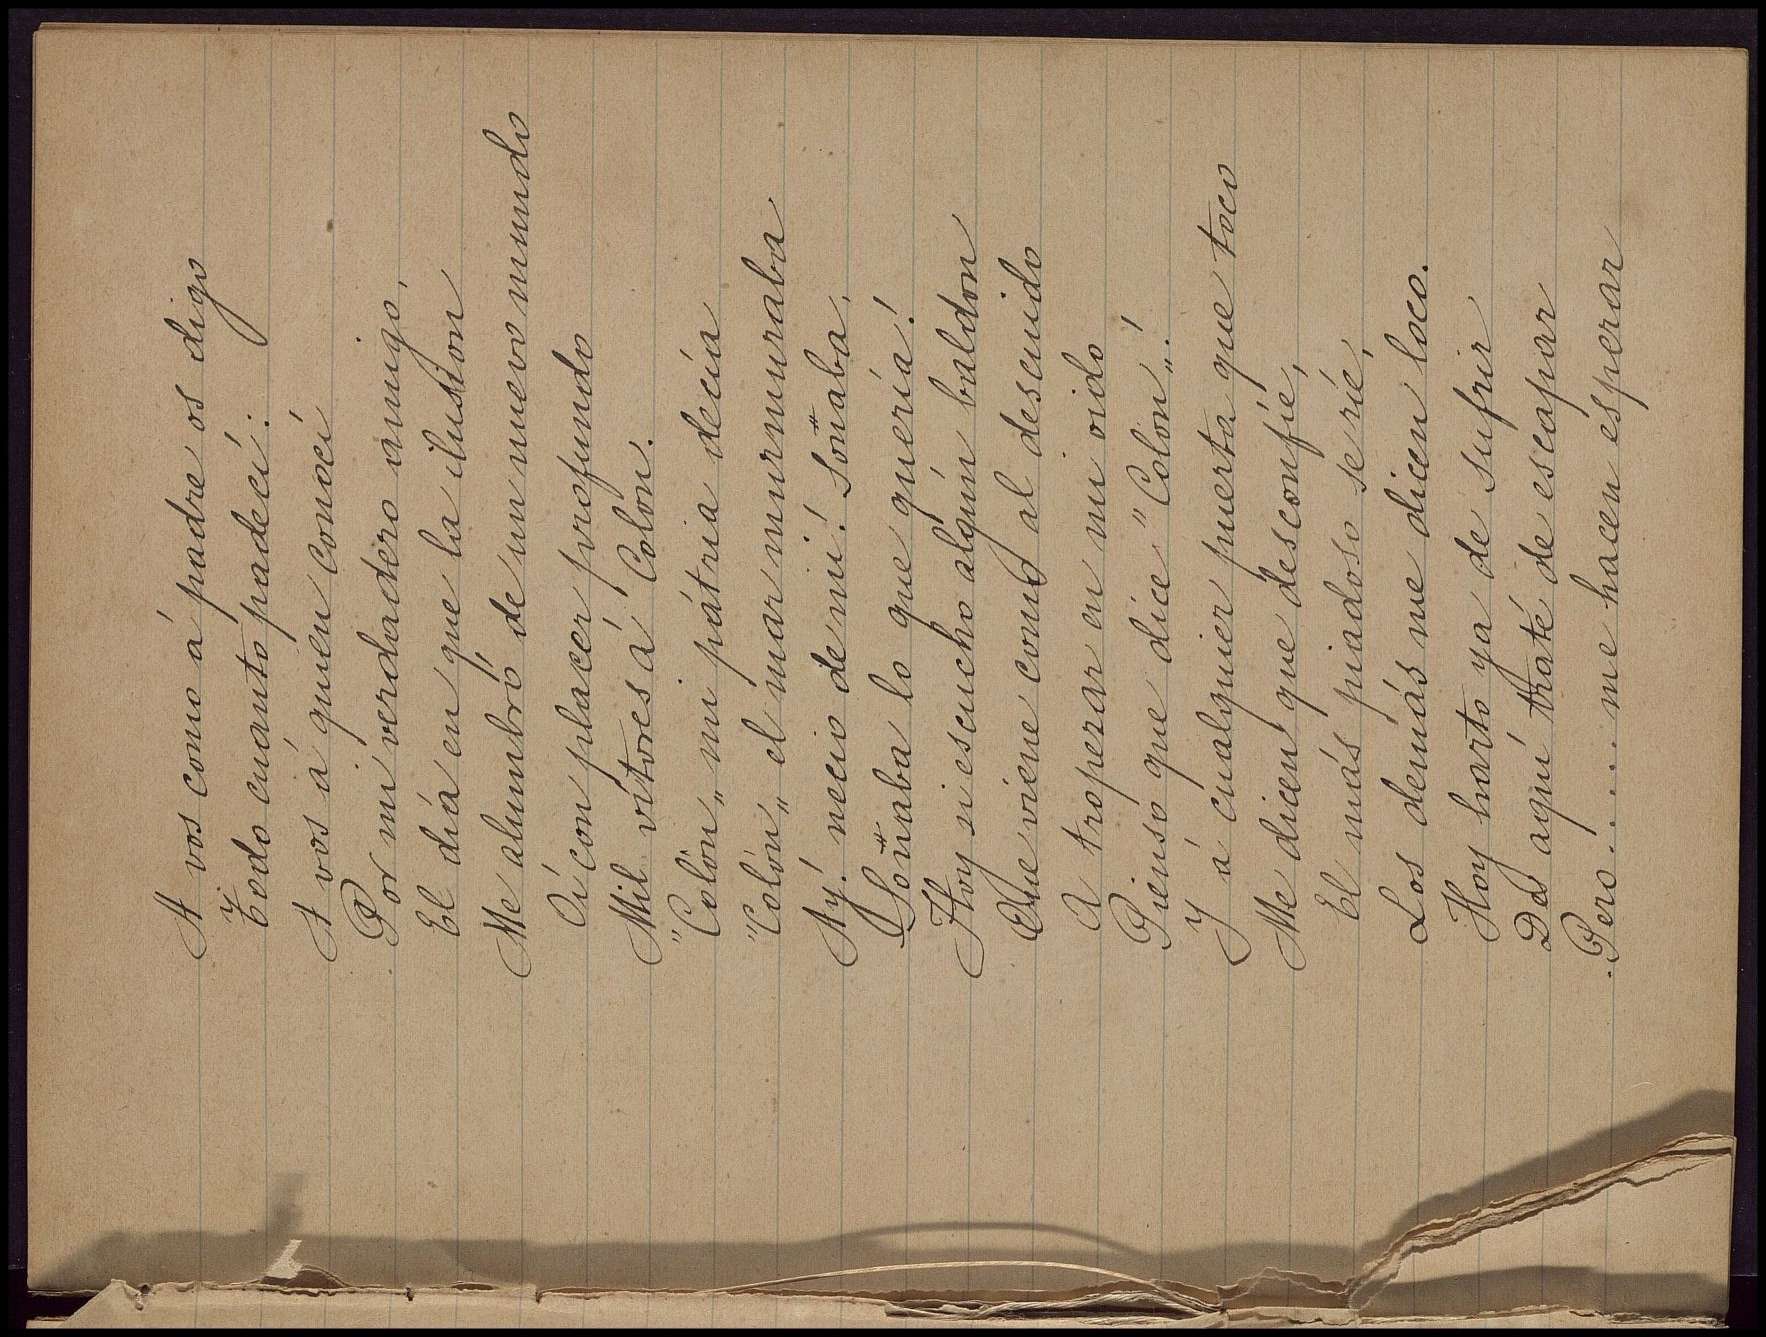 A vos como á padre os digo
Todo cuánto padecí:
A vos á quien conocí
Por mi verdadero amigo,
El diá en que la ilusion
Me alumbró de un nuevo mundo
Oí con placer profundo
Mil vítores á Colon.
"Colón„ mi pátria decía
"Colón„ el mar murmuraba
Ay! necio de mi! Soñaba,
Soñaba lo que quería!
Hoy si escucho algún baldon
Que viene como al descuido
A troperar en mi oido
Pienso que dice "Colón„!
Y á cualquier puerta que toco
Me dicen que desconfíe,
El más piadoso se ríe,
Los demás me dicen loco.
Hoy harto ya de sufrir
De aquí traté de escapar
Pero..... me hacen esperar